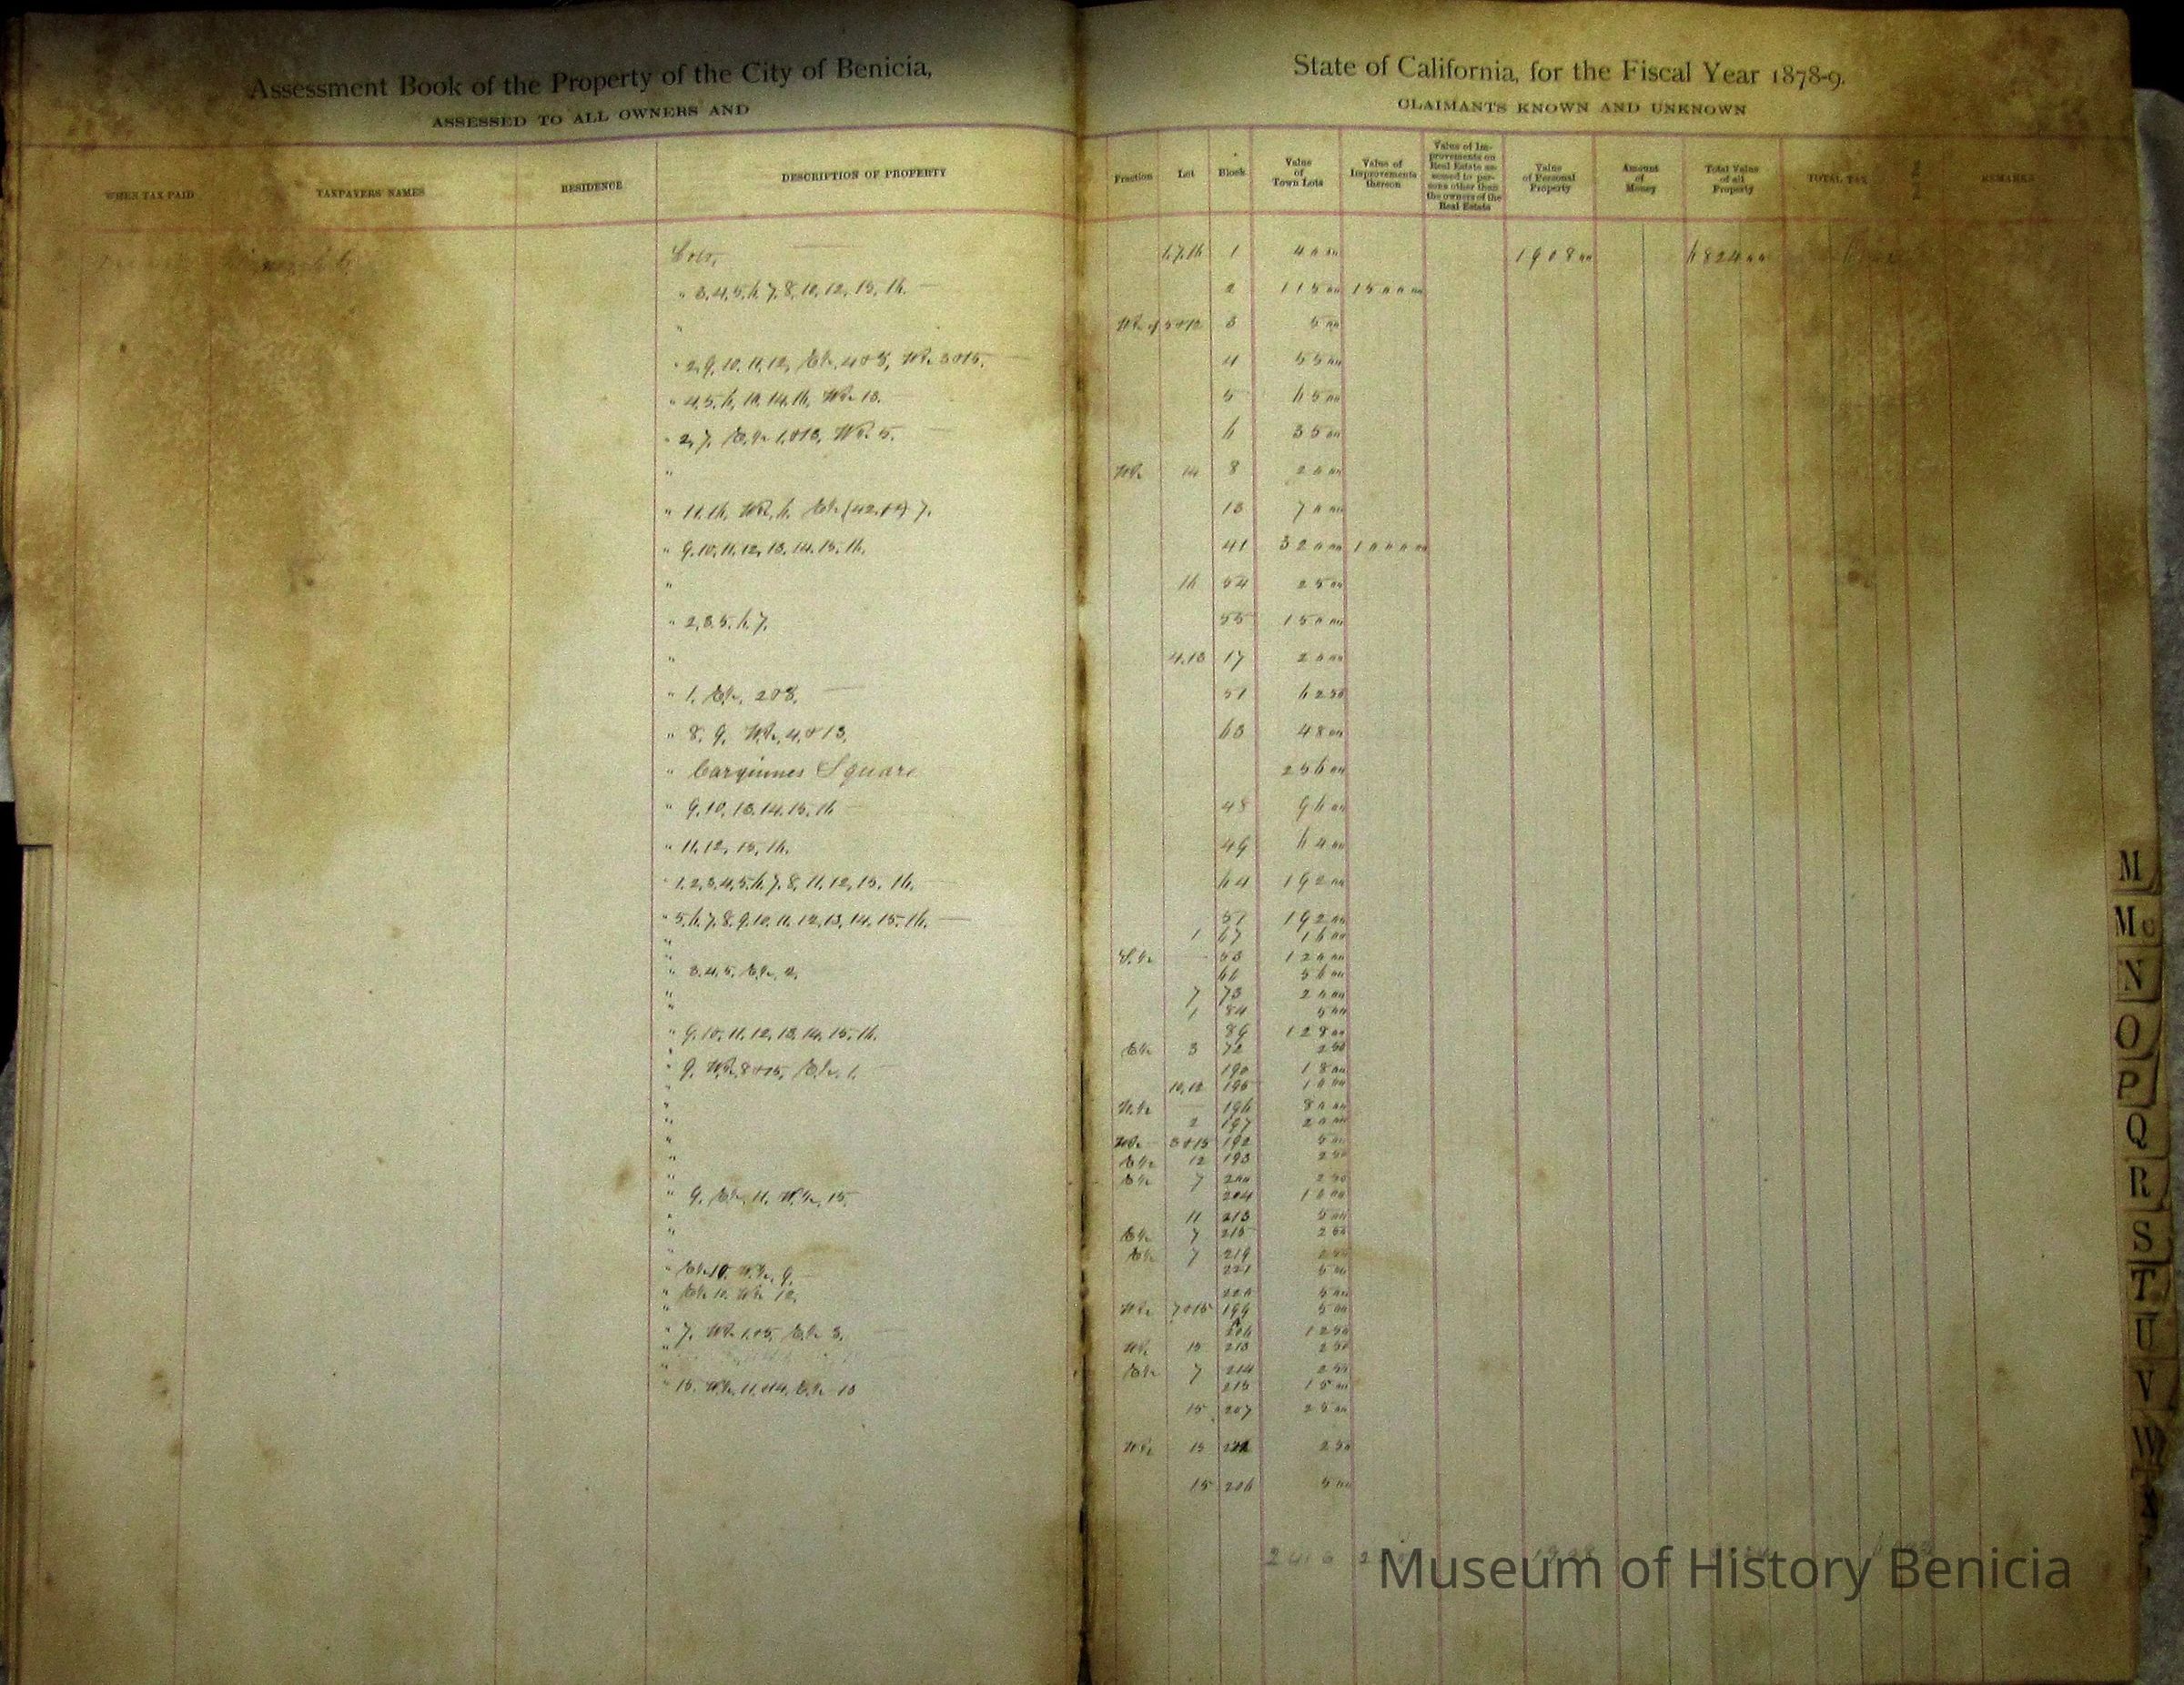 Assessment Book of the Property of the City of Benicia,
ASSESSED TO ALL OWNERS AND
State of California, for the Fiscal Year 1878-9.
CLAIMANTS KNOWN AND UNKNOWN
WHEN TAX PAID TAXPAYERS NAMES RESIDENCE DESCRIPTION OF PROPERTY Fraction Lot Block Value of Town Lots Value of Improvements thereon Value of Improvements on Real Estate assessed to persons other than the owners of the Real Estate Value of Personal Property Amount of Money Total Value of all Property TOTAL TAX REMARKS
Lots, 6,7,16 1 40 00 1908 00 6824 00
" 3,4,5,6,7,8,10,12,15,16. 2 115 00 1500 00
" W½ of 5+12 3 5 00
" 2,9,10,11,12, E½ 4+8, W½ 3+15. 4 55 00
" 4,5,6,10,14,16, W½ 13. 5 65 00
" 2,7, E½ 1,+13, W½ 5. 6 35 00
" W½ 14 8 20 00
" 11,16, W½ 6, 13 70 00
" 9,10,11,12,13,14,15,16. 41 320 00 1000 00
" 16 54 25 00
" 2,3,5,6,7. 55 150 00
" 4,13 17 20 00
" 1, E½, 2+8. 51 62 50
" 8, 9, W½, 4,+13. 63 48 00
" Carquines Square 256 00
" 9,10,13,14,15,16 48 96 00
" 11,12,15,16. 49 64 00
" 1,2,3,4,5,6,7,8,11,12,15,16. 64 192 00
" 5,6,7,8,9,10,11,12,13,14,15,16. 57 192 00
" 1 67 16 00
" S.½ 53 120 00
" 3,4,5, E½, 2. 56 00
" 7 73 20 00
" 1 84 5 00
" 9,10,11,12,13,14,15,16. 89 128 00
" E½ 3 72 2 50
" 9, W½ 8+15, E½, 1. 190 18 00
" 10,12 195 10 00
" N.½ 196 80 00
" 2 197 20 00
" W½ 3+15 192 5 00
" E½ 12 193 2 50
" E½ 7 200 2 50
" 9, E½, 11, W½, 15. 204 10 00
" 11 213 5 00
" E½ 7 215 2 50
" E½ 7 219 2 50
" E½ 10, W½, 9. 221 5 00
" E½ 11, W½ 12. 220 5 00
" W½ 7+15 199 5 00
" 7, W½ 1,+5, E½ 3. 12 50
" W½ 15 213 2 50
" E½ 7 214 2 50
" 15, W½ 11,+14, E½ 13 215 15 00
15 207 25 00
W½ 15 2 50
15 206 5 00
Museum of History Benicia
M
Mc
N
O
P
Q
R
S
T
U
V
W